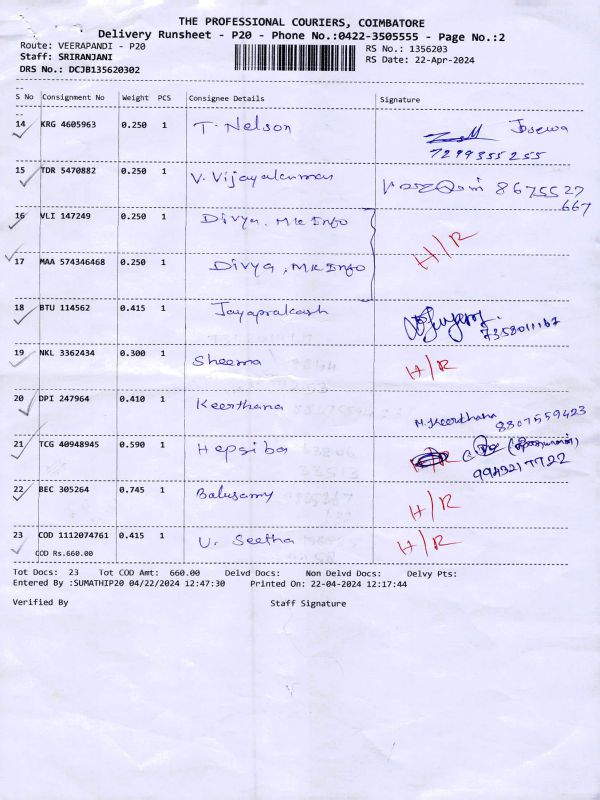 THE PROFESSIONAL COURIERS, COIMBATORE
Delivery Runsheet - P20 - Phone No.:0422-3505555 - Page No.:2
Route: VEERAPANDI - P20 RS No.: 1356203
Staff: SRIRANJANI RS Date: 22-Apr-2024
DRS No.: DCJB135620302
S No Consignment No Weight PCS Consignee Details Signature
14 KRG 4605963 0.250 1 T. Nelson Josewa
7299355255
15 TDR 5470882 0.250 1 V. Vijayakumar 8675527
667
16 VLI 147249 0.250 1 Divya, MK Info H/R
17 MAA 574346468 0.250 1 Divya, MK Info
18 BTU 114562 0.415 1 Jayaprakash
7358011167
19 NKL 3362434 0.300 1 Sheema H/R
20 DPI 247964 0.410 1 Keerthana M. Keerthana 8807559423
21 TCG 40948945 0.590 1 Hepsiba H/R
9943217722
22 BEC 305264 0.745 1 Balusamy H/R
23 COD 1112074761 0.415 1 U. Seetha H/R
COD Rs.660.00
Tot Docs: 23 Tot COD Amt: 660.00 Delvd Docs: Non Delvd Docs: Delvy Pts:
Entered By :SUMATHIP20 04/22/2024 12:47:30 Printed On: 22-04-2024 12:17:44
Verified By Staff Signature